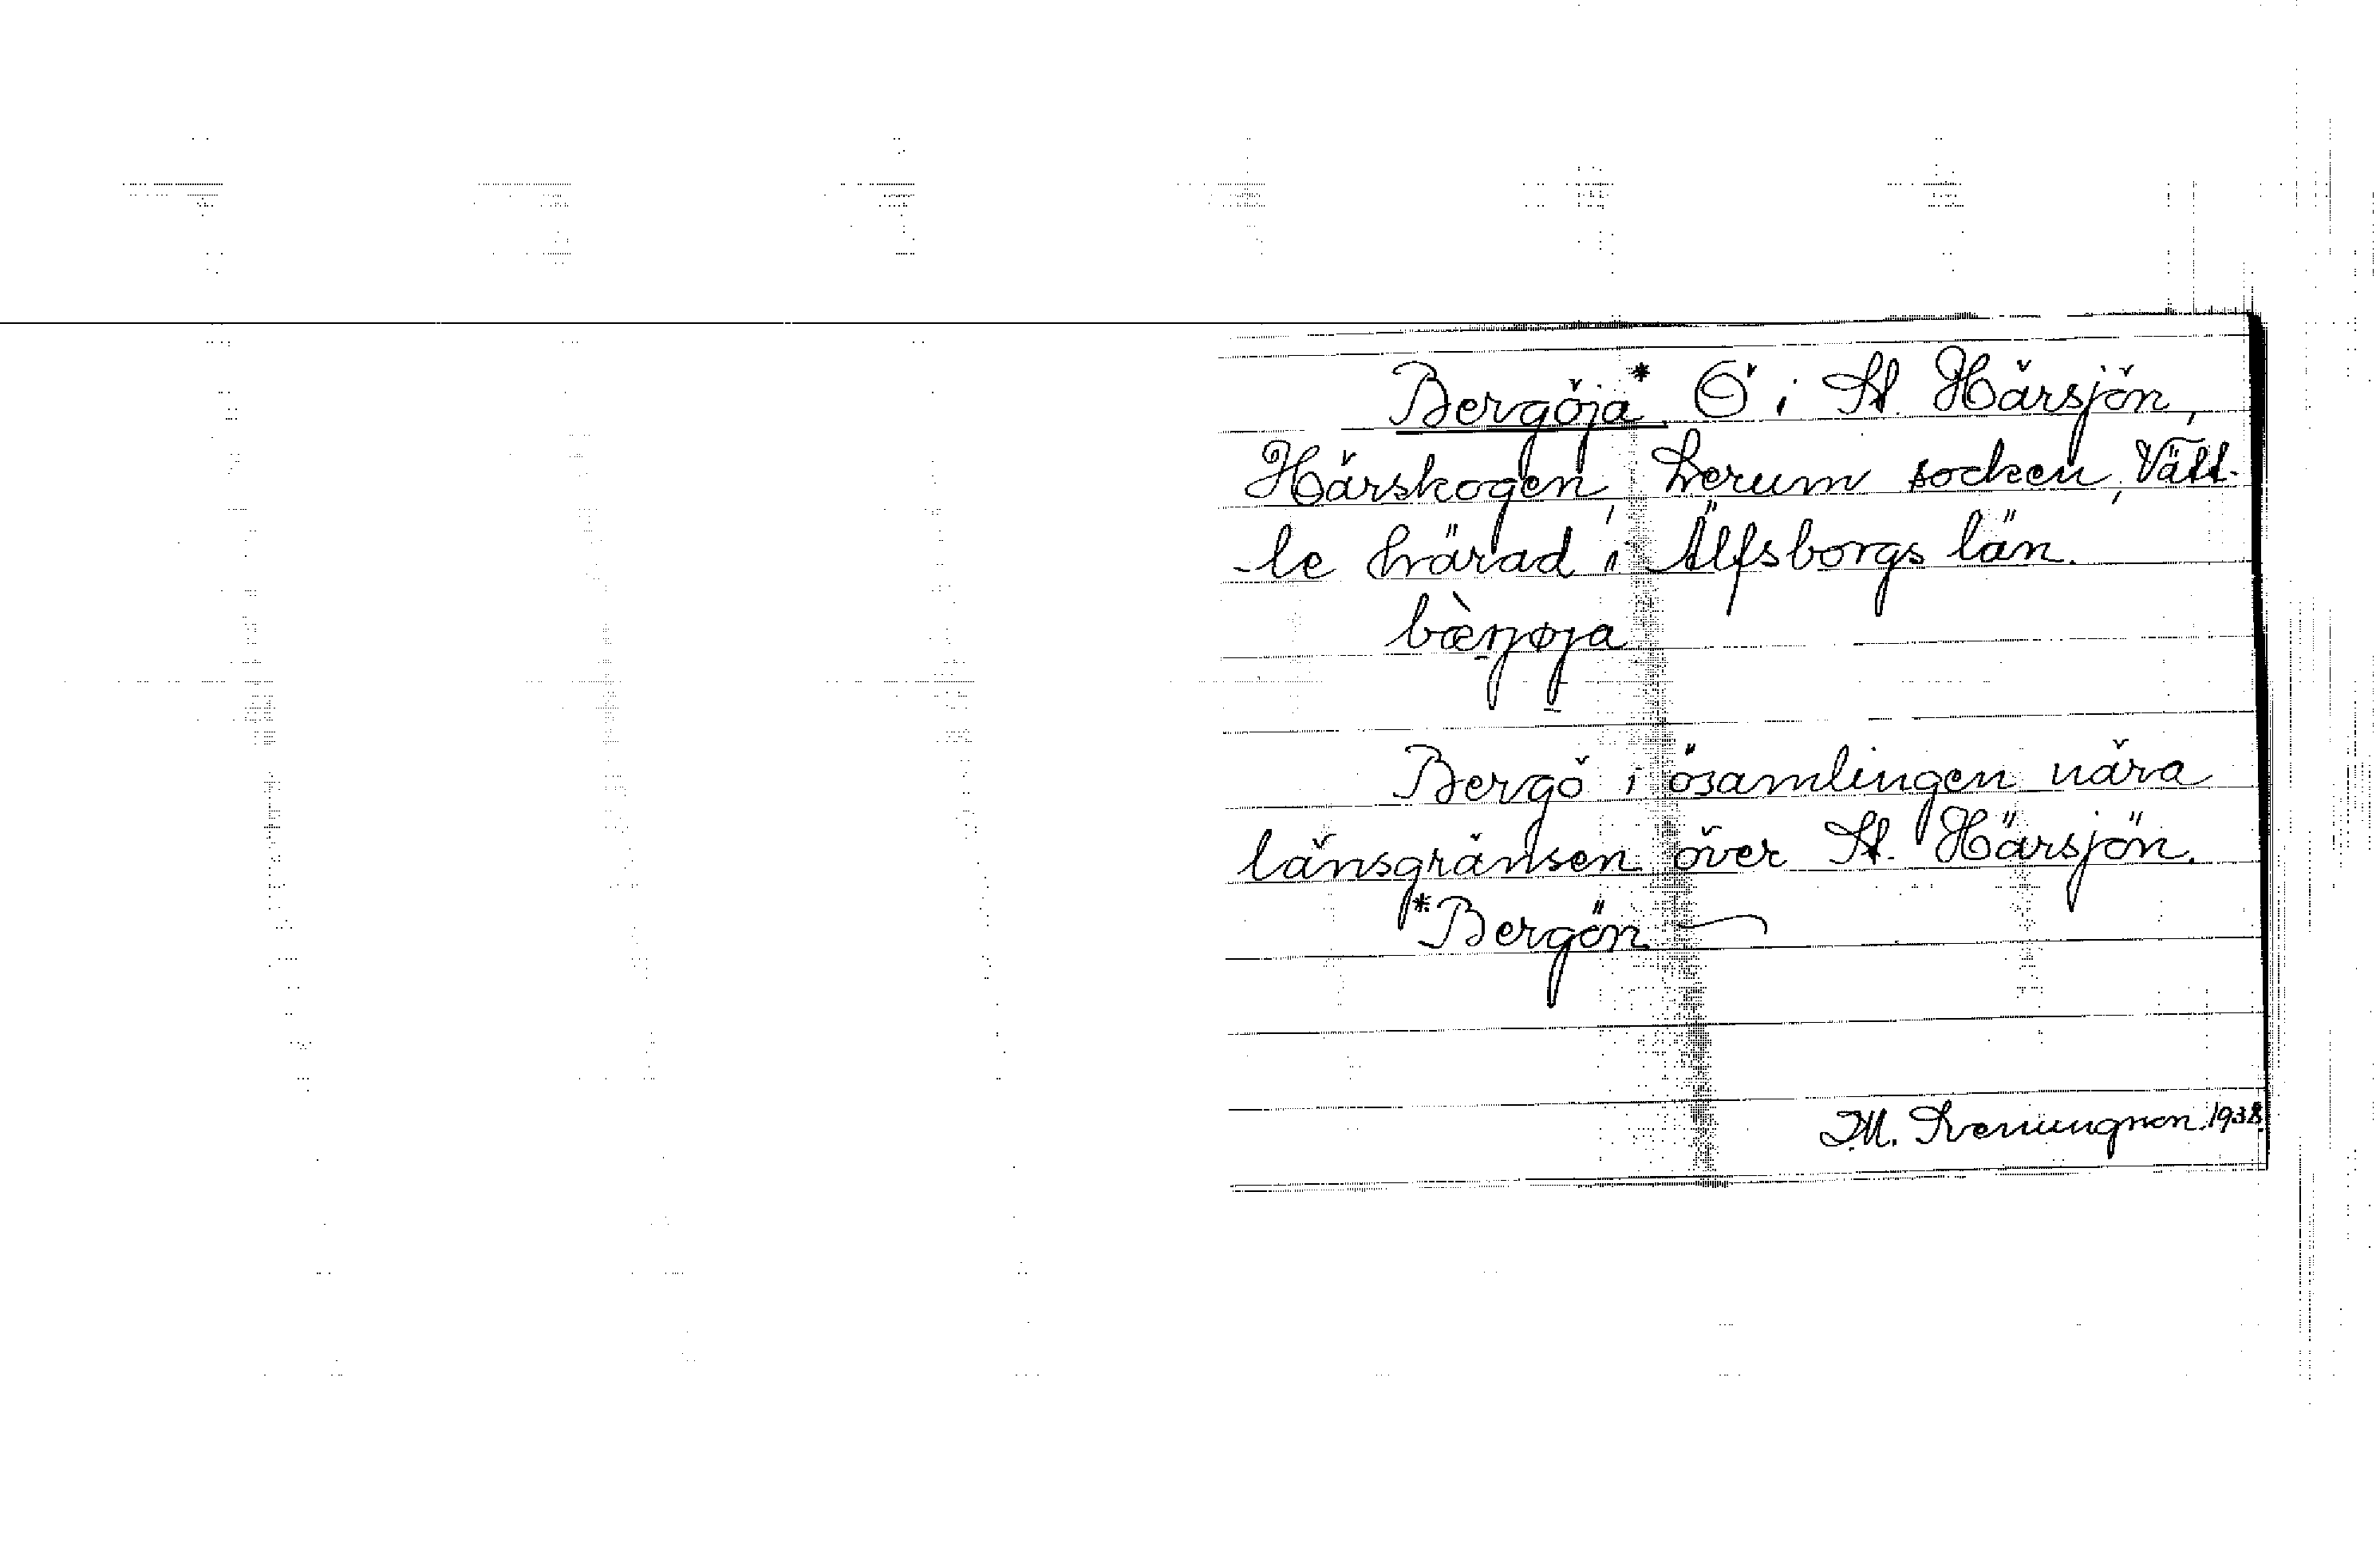 Bergöja* Ö i St. Härsjön,
Härskogen, Lerum socken, Vätt-
-le härad i Älfsborgs län.
bæ̀rjøja
Bergö i ösamlingen nära
länsgränsen över St. Härsjön.
*Bergön
M. 1938